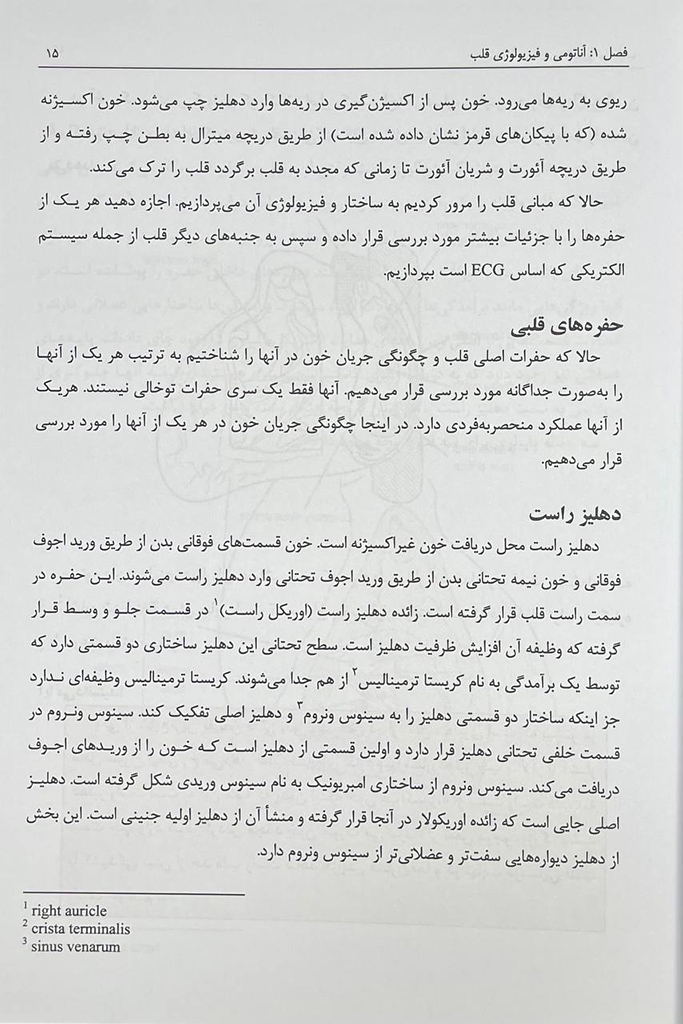 فصل ۱: آناتومی و فیزیولوژی قلب ۱۵
ریوی به ریه‌ها می‌رود. خون پس از اکسیژن‌گیری در ریه‌ها وارد دهلیز چپ می‌شود. خون اکسیژنه
شده (که با پیکان‌های قرمز نشان داده شده است) از طریق دریچه میترال به بطن چپ رفته و از
طریق دریچه آئورت و شریان آئورت تا زمانی که مجدد به قلب برگردد قلب را ترک می‌کند.
حالا که مبانی قلب را مرور کردیم به ساختار و فیزیولوژی آن می‌پردازیم. اجازه دهید هر یک از
حفره‌ها را با جزئیات بیشتر مورد بررسی قرار داده و سپس به جنبه‌های دیگر قلب از جمله سیستم
الکتریکی که اساس ECG است بپردازیم.
حفره‌های قلبی
حالا که حفرات اصلی قلب و چگونگی جریان خون در آنها را شناختیم به ترتیب هر یک از آنها
را به‌صورت جداگانه مورد بررسی قرار می‌دهیم. آنها فقط یک سری حفرات توخالی نیستند. هریک
از آنها عملکرد منحصربه‌فردی دارد. در اینجا چگونگی جریان خون در هر یک از آنها را مورد بررسی
قرار می‌دهیم.
دهلیز راست
دهلیز راست محل دریافت خون غیراکسیژنه است. خون قسمت‌های فوقانی بدن از طریق ورید اجوف
فوقانی و خون نیمه تحتانی بدن از طریق ورید اجوف تحتانی وارد دهلیز راست می‌شوند. این حفره در
سمت راست قلب قرار گرفته است. زائده دهلیز راست (اوریکل راست)۱ در قسمت جلو و وسط قرار
گرفته که وظیفه آن افزایش ظرفیت دهلیز است. سطح تحتانی این دهلیز ساختاری دو قسمتی دارد که
توسط یک برآمدگی به نام کریستا ترمینالیس۲ از هم جدا می‌شوند. کریستا ترمینالیس وظیفه‌ای ندارد
جز اینکه ساختار دو قسمتی دهلیز را به سینوس ونروم۳ و دهلیز اصلی تفکیک کند. سینوس ونروم در
قسمت خلفی تحتانی دهلیز قرار دارد و اولین قسمتی از دهلیز است که خون را از وریدهای اجوف
دریافت می‌کند. سینوس ونروم از ساختاری امبریونیک به نام سینوس وریدی شکل گرفته است. دهلیز
اصلی جایی است که زائده اوریکولار در آنجا قرار گرفته و منشأ آن از دهلیز اولیه جنینی است. این بخش
از دهلیز دیواره‌هایی سفت‌تر و عضلانی‌تر از سینوس ونروم دارد.
1 right auricle
2 crista terminalis
3 sinus venarum